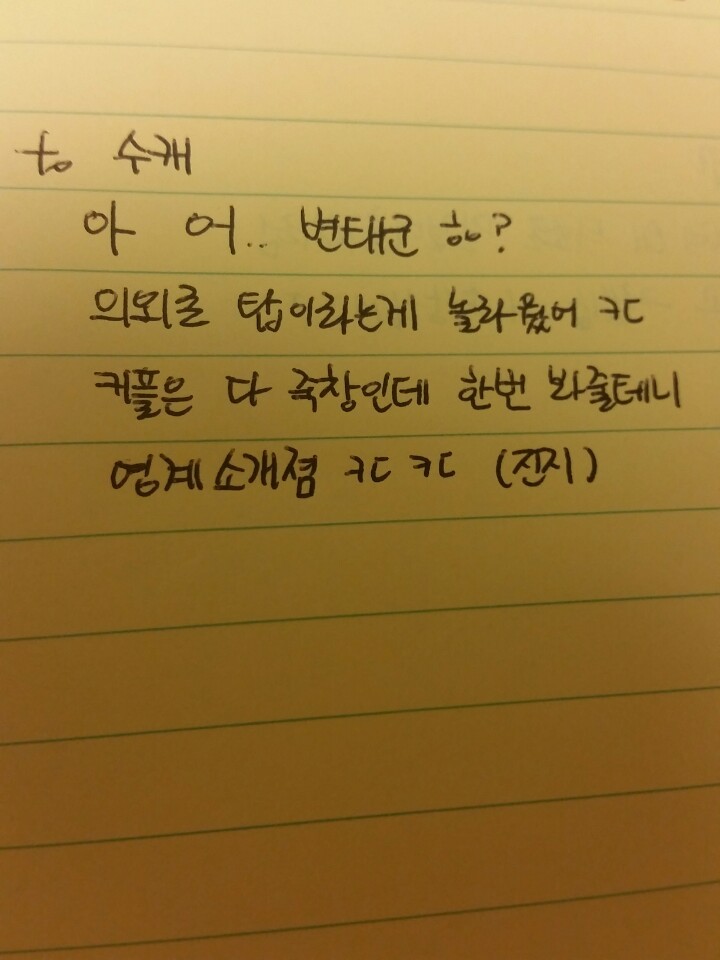 to 수개
아 어.. 변태군 ㅎㅎ?
의외로 탑이라는게 놀라웠어 ㅋㄷ
커플은 다 죽창인데 한번 봐줄테니
영계소개점 ㅋㄷㅋㄷ (진지)